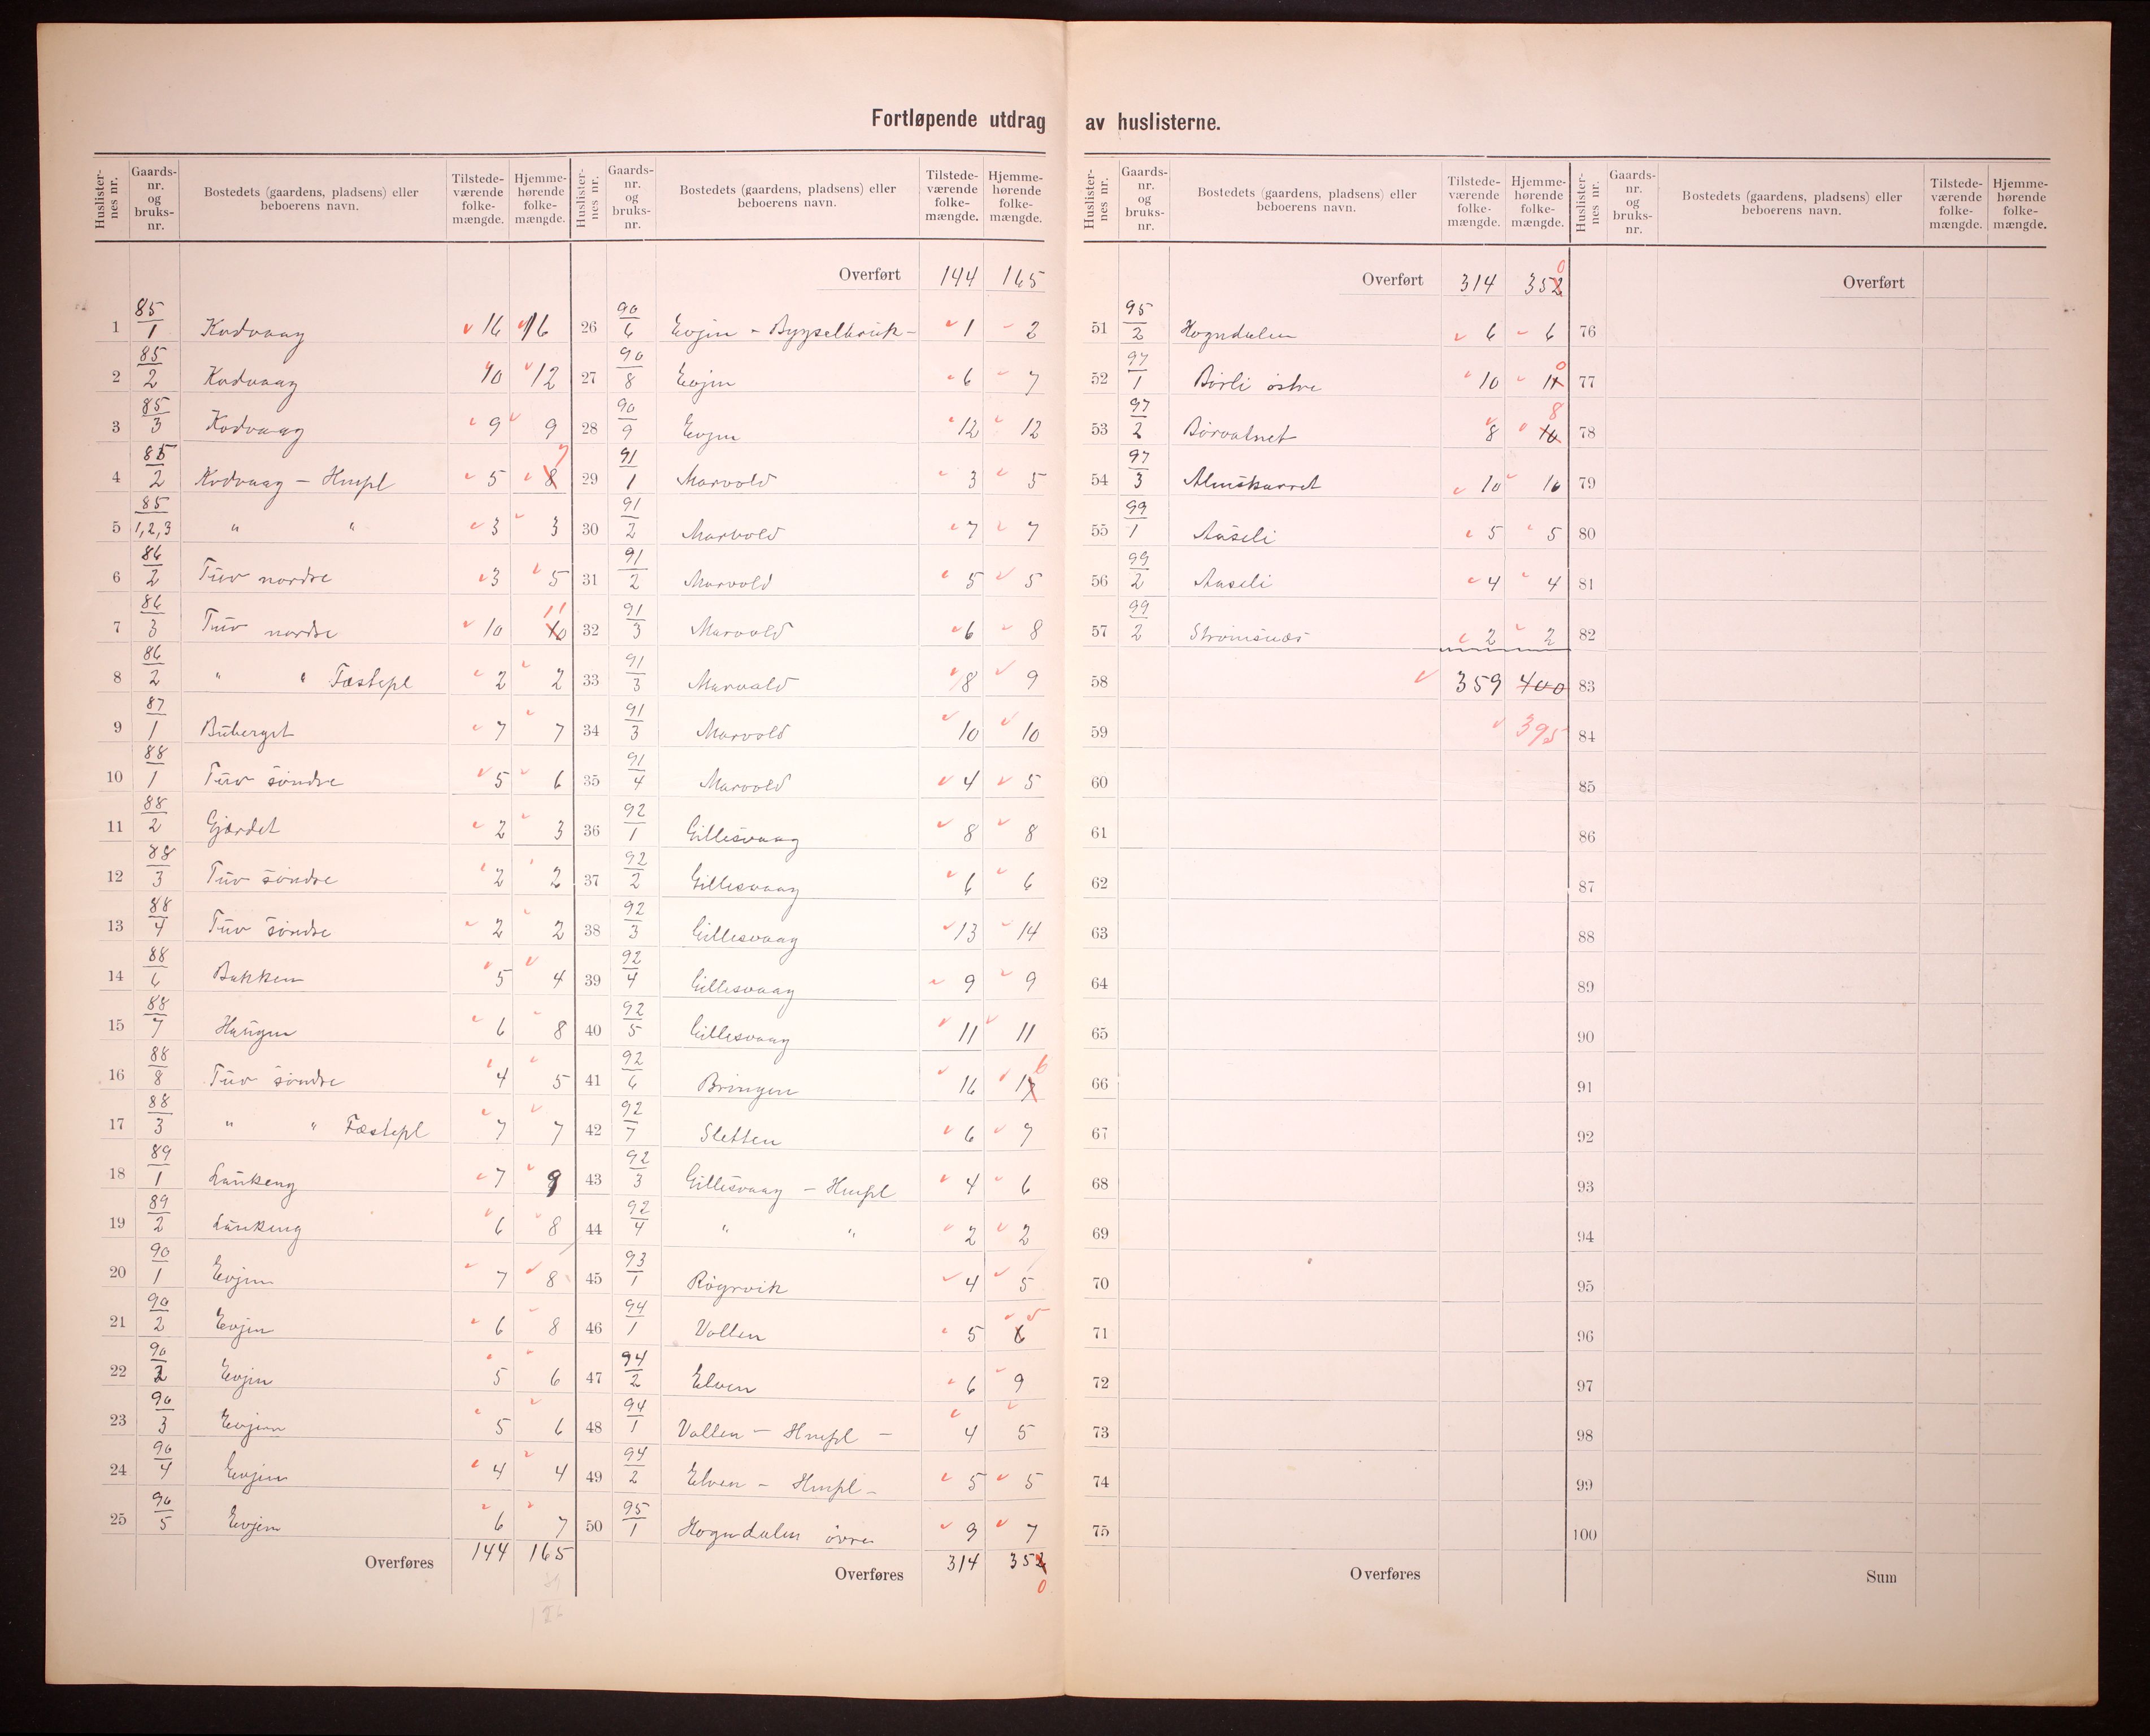 Fortløpende utdrag av huslisterne.
Huslisternes nr. | Gaardsnr. og bruksnr. | Bostedets (gaardens, pladsens) eller beboerens navn. | Tilstedeværende folkemængde. | Hjemmehørende folkemængde.
1 85/1 Kodvaag 16 16
2 85/2 Kodvaag 10 12
3 85/3 Kodvaag 9 9
4 85/2 Kodvaag - Huspl 5 8 7
5 85/1,2,3 " " 3 3
6 86/2 Tuv nordre 3 5
7 86/3 Tuv nordre 10 10 11
8 86/2 " " Fæstepl 2 2
9 87/1 Buberget 7 7
10 88/1 Tuv söndre 5 6
11 88/2 Gjærdet 2 3
12 88/3 Tuv söndre 2 2
13 88/4 Tuv söndre 2 2
14 88/6 Bakken 5 4
15 88/7 Haugen 6 8
16 88/8 Tuv söndre 4 5
17 88/3 " " Fæstepl 7 7
18 89/1 Laukeng 7 9
19 89/2 Laukeng 6 8
20 90/1 Evjen 7 8
21 90/2 Evjen 6 8
22 90/2 Evjen 5 6
23 90/3 Evjen 5 6
24 90/4 Evjen 4 4
25 90/5 Evjen 6 7
Overføres 144 165
Huslisternes nr. | Gaardsnr. og bruksnr. | Bostedets (gaardens, pladsens) eller beboerens navn. | Tilstedeværende folkemængde. | Hjemmehørende folkemængde.
Overført 144 165
26 90/6 Evjen - Bygselbruk - 1 2
27 90/8 Evjen 6 7
28 90/9 Evjen 12 12
29 91/1 Marvold 3 5
30 91/2 Marvold 7 7
31 91/2 Marvold 5 5
32 91/3 Marvold 6 8
33 91/3 Marvold 8 9
34 91/3 Marvold 10 10
35 91/4 Marvold 4 5
36 92/1 Gillesvaag 8 8
37 92/2 Gillesvaag 6 6
38 92/3 Gillesvaag 13 14
39 92/4 Gillesvaag 9 9
40 92/5 Gillesvaag 11 11
41 92/6 Bringen 16 17 6
42 92/7 Sletten 6 9
43 92/3 Gillesvaag - Huspl 4 6
44 92/4 " " 2 2
45 93/1 Røyrvik 4 5
46 94/1 Vollen 5 6 5
47 94/2 Elven 6 9
48 94/1 Vollen - Huspl - 4 5
49 94/2 Elven - Huspl - 5 5
50 95/1 Hogndalen övre 9 7
Overføres 314 352 0
Huslisternes nr. | Gaardsnr. og bruksnr. | Bostedets (gaardens, pladsens) eller beboerens navn. | Tilstedeværende folkemængde. | Hjemmehørende folkemængde.
Overført 314 352 0
51 95/2 Hogndalen 6 6
52 97/1 Börli östre 10 11 0
53 97/2 Börvatnet 8 10 8
54 97/3 Almskarret 10 10
55 99/1 Aaseli 5 5
56 99/2 Aaseli 4 4
57 99/2 Strömsnæs 2 2
58 359 400
59 395
60
61
62
63
64
65
66
67
68
69
70
71
72
73
74
75
Overføres
Huslisternes nr. | Gaardsnr. og bruksnr. | Bostedets (gaardens, pladsens) eller beboerens navn. | Tilstedeværende folkemængde. | Hjemmehørende folkemængde.
Overført
76
77
78
79
80
81
82
83
84
85
86
87
88
89
90
91
92
93
94
95
96
97
98
99
100
Sum